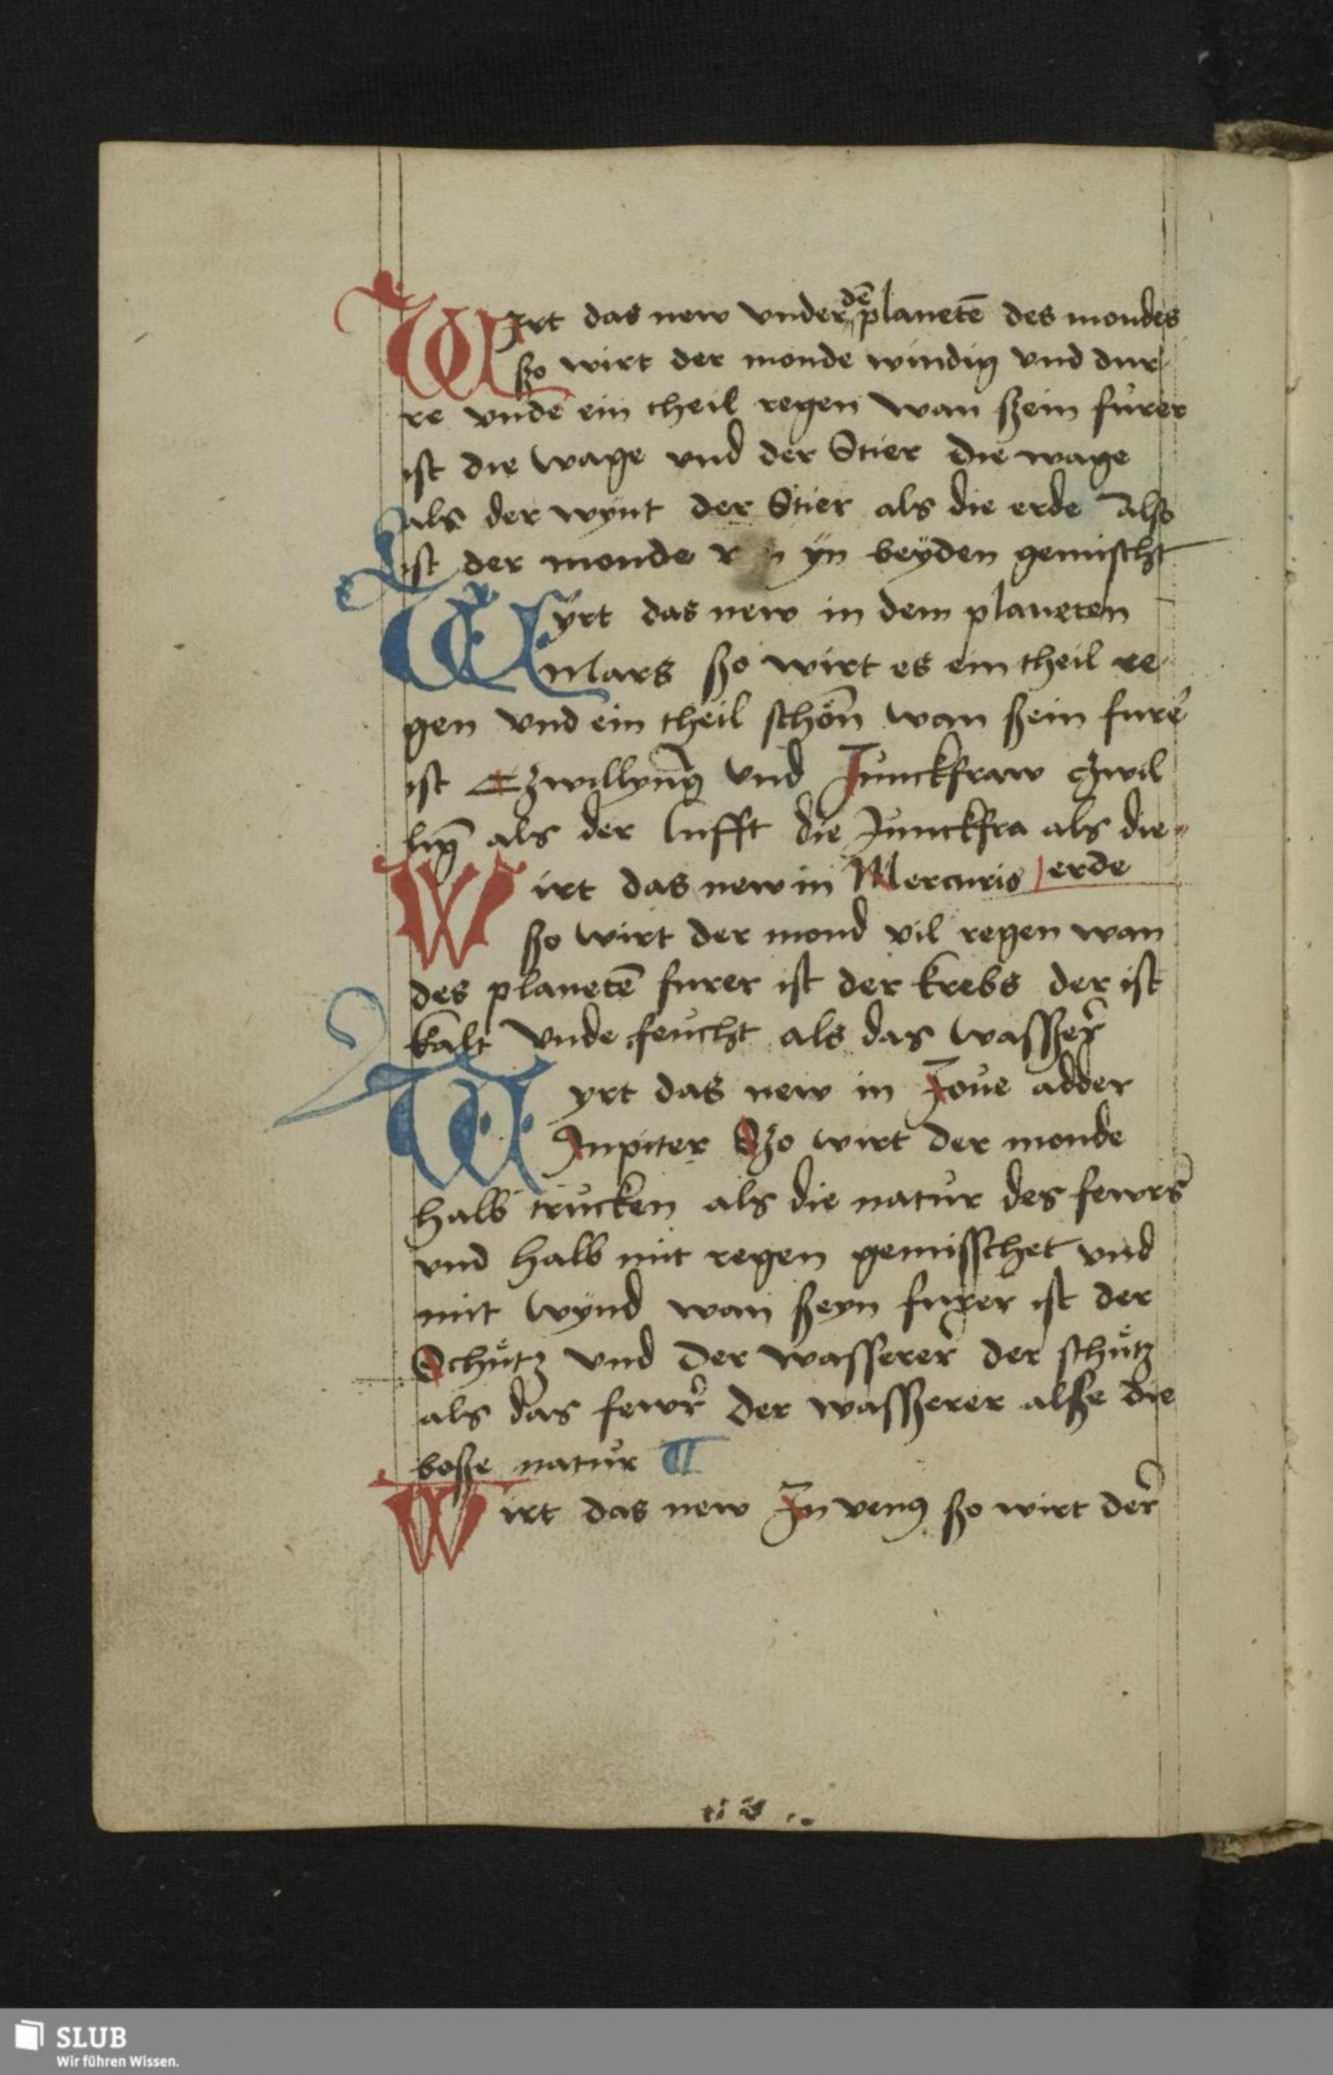 WIrt das new vnder dē planetē des mondes
ßo wirt der monde windig vnd dur
re vnde ein theil regen wan ßein furer
ist die wage vnd der Stier die wage
als der wynt der Stier als die erde Also
ist der monde yn beyden gemischt
Wyrt das new in dem planeten
Mars ßo wirt es ein theil re
gen vnd ein theil schön wan ßein furer
ist Czwillyng vnd Junckfraw czwil
lig als der lufft die Junckfra als die
Wirt das new in Mercuris erde
ßo wirt der mond vil regen wan
des planetē furer ist der krebs der ist
kalt vnde feucht als das wasßer
Wyrt das new in Joue adder
Jupiter Szo wirt der monde
halb trucken als die natur des fewrs
vnd halb mit regen gemisschet vnd
mit wynd wan ßeyn furer ist der
Schütz vnd der wasserer der schütz
als das fewr der wasßerer alße die
boße natur ¶
Wirt das new In venus ßo wirt der
SLUB
Wir führen Wissen.